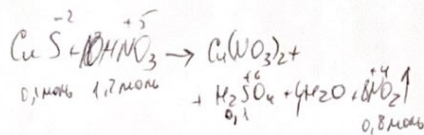 -2 +5
CuS + 10HNO3 → Cu(NO3)2 +
0,1 моль 1,2 моль
+6 +4
+ H2SO4 + 4H2O + 8NO2↑
0,1 0,8 моль